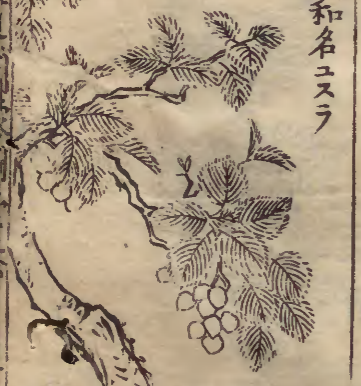 和名ユスラ